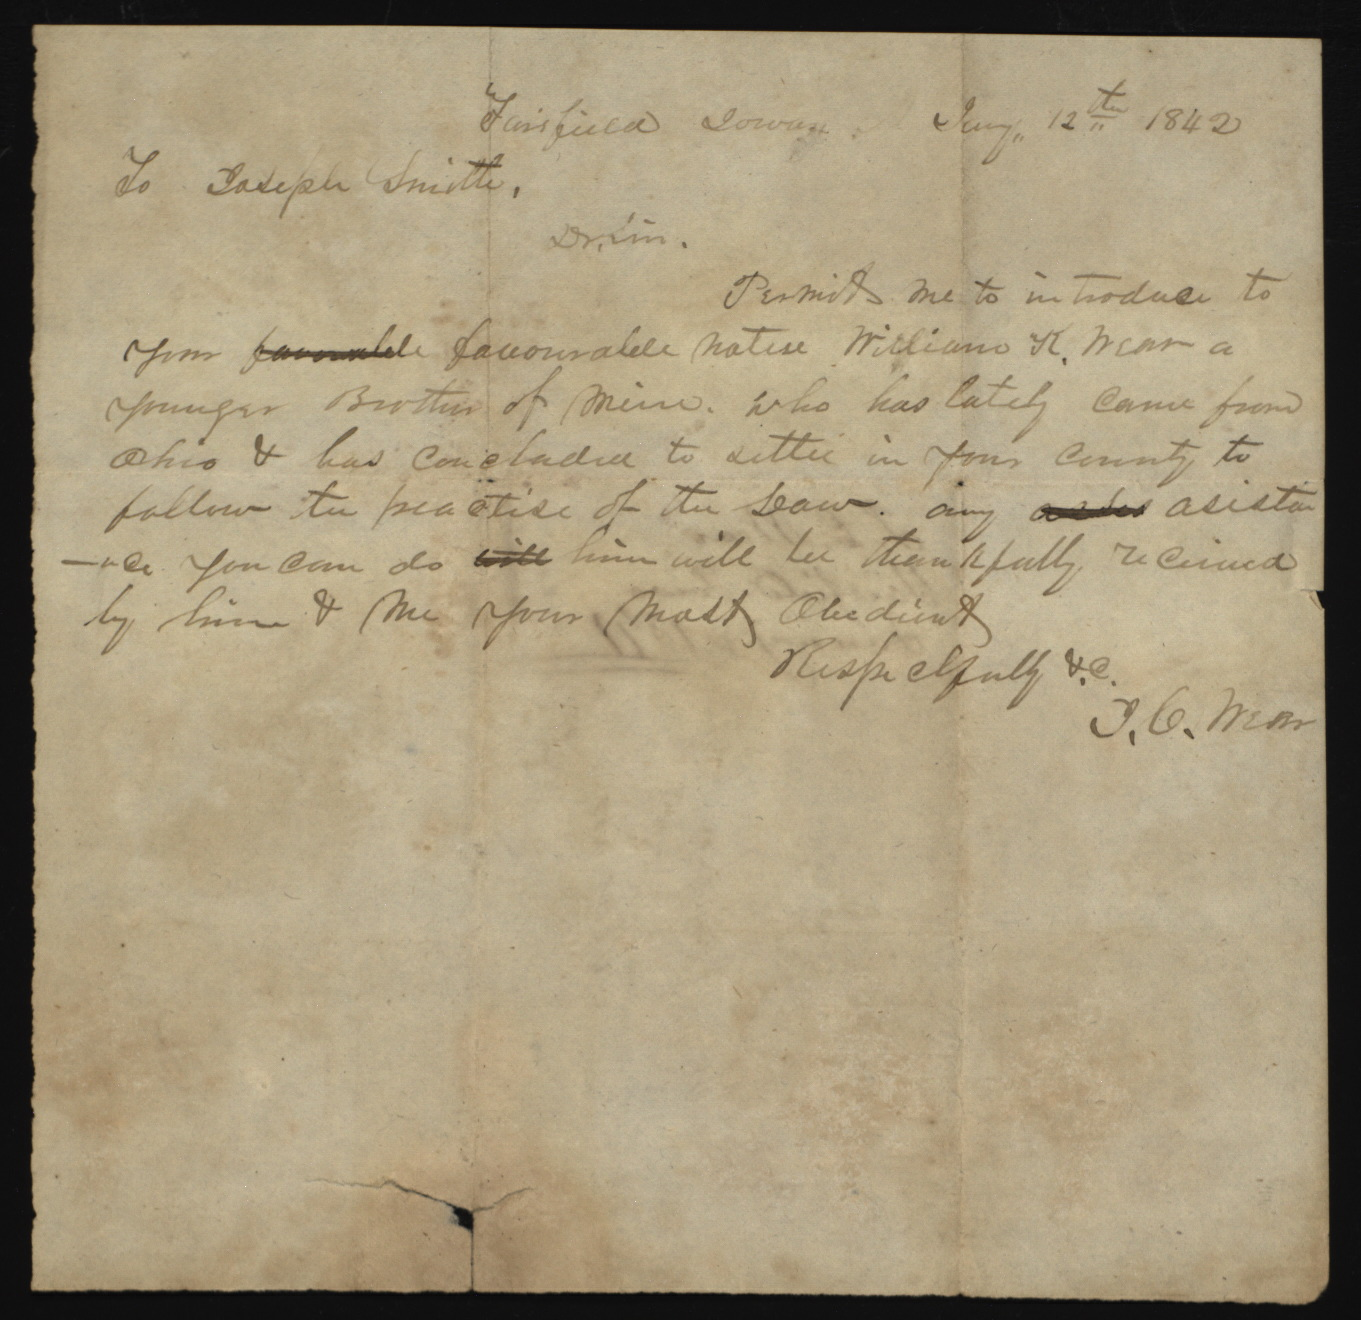 Fairfield Iowa Jany. 12th 1842
To Joseph Smith,
Dr, Sir.
Permit me to introduce to
your favourable favourable notise William K. Wear a
younger Brother of mine. who has lately came from
Ohio & has concluded to settle in your County to
follow the practise of the Law. any asistan
-nce you can do will him will be thankfully reciived
by him & me your most Obedient
Respectfully &.C.
J. C. Wear